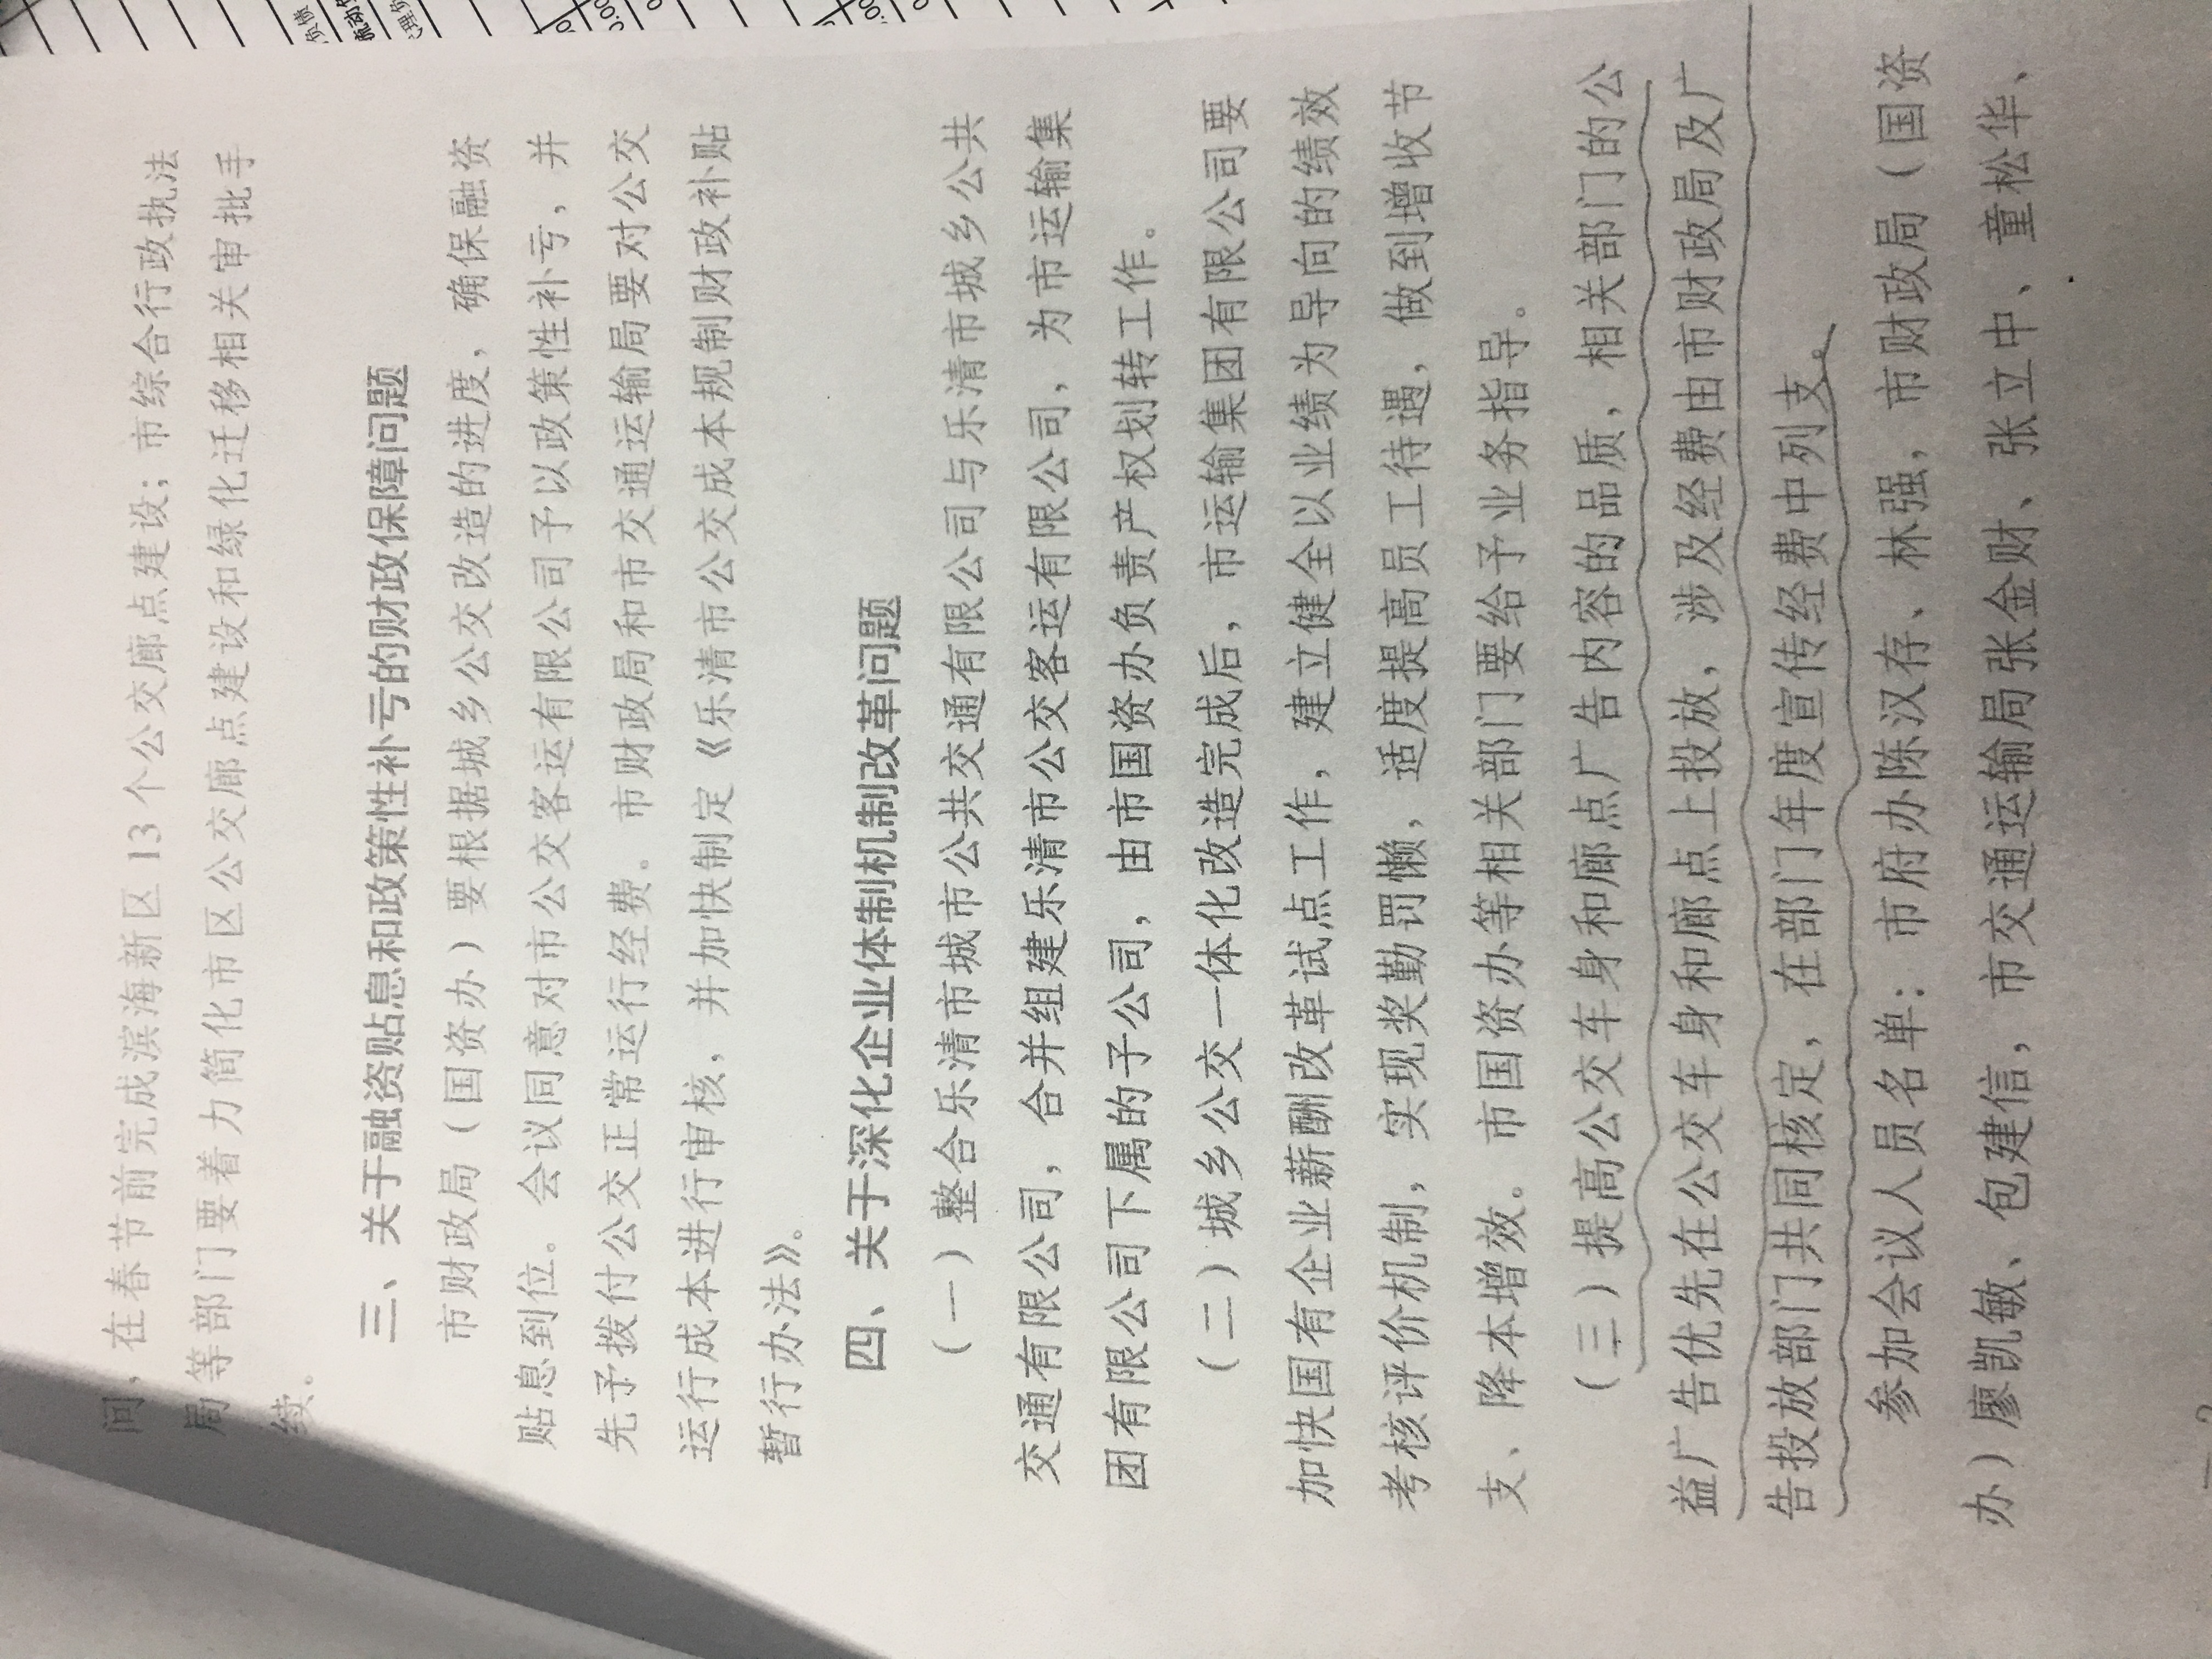 间，在春节前完成滨海新区 13 个公交廊点建设；市综合行政执法
局等部门要着力简化市区公交廊点建设和绿化迁移相关审批手
续。
三、关于融资贴息和政策性补亏的财政保障问题
市财政局（国资办）要根据城乡公交改造的进度，确保融资
贴息到位。会议同意对市公交客运有限公司予以政策性补亏，并
先予拨付公交正常运行经费。市财政局和市交通运输局要对公交
运行成本进行审核，并加快制定《乐清市公交成本规制财政补贴
暂行办法》。
四、关于深化企业体制机制改革问题
（一）整合乐清市城市公共交通有限公司与乐清市城乡公共
交通有限公司，合并组建乐清市公交客运有限公司，为市运输集
团有限公司下属的子公司，由市国资办负责产权划转工作。
（二）城乡公交一体化改造完成后，市运输集团有限公司要
加快国有企业薪酬改革试点工作，建立健全以业绩为导向的绩效
考核评价机制，实现奖勤罚懒，适度提高员工待遇，做到增收节
支、降本增效。市国资办等相关部门要给予业务指导。
（三）提高公交车身和廊点广告内容的品质，相关部门的公
益广告优先在公交车身和廊点上投放，涉及经费由市财政局及广
告投放部门共同核定，在部门年度宣传经费中列支。
参加会议人员名单：市府办陈汉存、林强，市财政局（国资
办）廖凯敏、包建信，市交通运输局张金财、张立中、童松华、